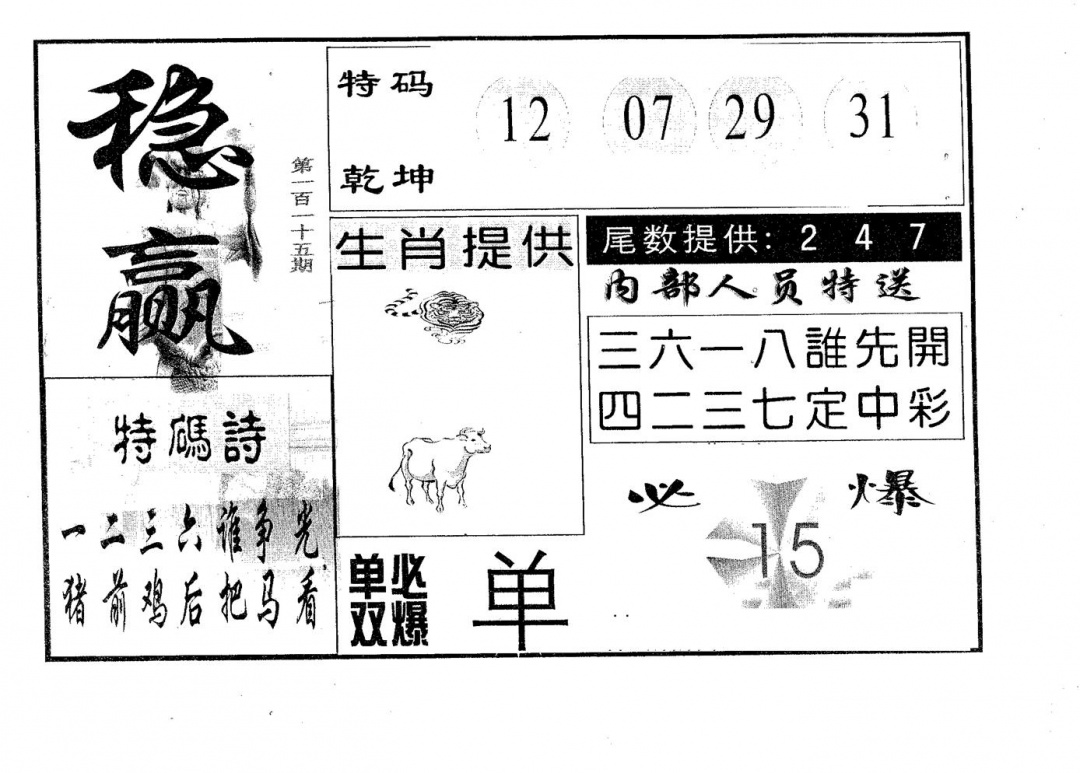 稳赢
第一百一十五期
特码
乾坤
12 07 29 31
生肖提供
尾数提供: 2 4 7
内部人员特送
三六一八誰先開
四二三七定中彩
特碼詩
一二三六谁争光
猪前鸡后把马看
必爆
15
单双
必爆
单